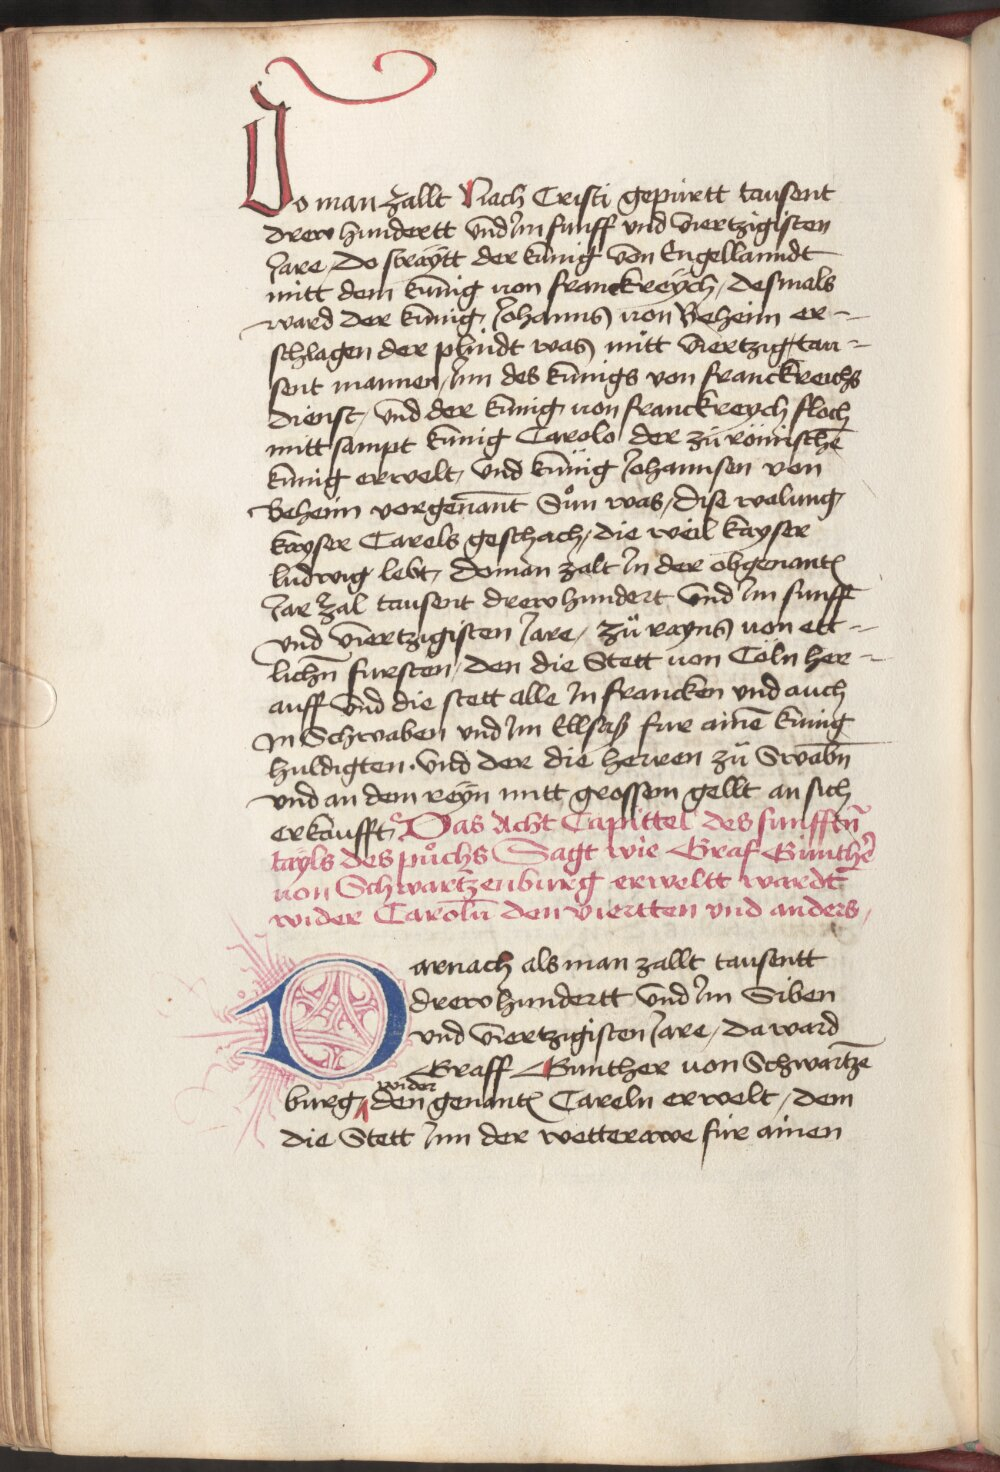 Do man zallt Nach Cristi gepürtt tausent
drew hundertt vnd Im funff vnd viertzigisten
Jare, Do straÿtt der kunig von Engellanndt
mitt dem kunig von franckreÿch, desmals
ward der kunig Johanns von Beheim er-
schlagen der plindt was mitt viertzig tau-
sent mannen, Inn des kunigs von franckreichs
dienst, vnd der kunig von franckreych floch
mitt sampt kunig Carolo der zü römischē
kunig erwelt, vnd kunig Johannsen von
Beheim vorgenānt Sůn was, dise walung
kayser Carels geschach, die weil kayser
ludwig lebt, do man zalt In der obgenantē
Jar zal tausent drew hundert vnd Im funfft
vnd viertzigisten Jare, zü rayns von ett-
lichn̄ fursten, den die Stett von Cöln her-
auff vnd die stett alle In francken vnd auch
In Schwaben vnd Im Ellsass fur ainē kunig
huldigten. vnd der die herren zü Swabn̄
vnd an dem reÿn mitt grossem gellt an sich
erkaufft, Das Acht Capittel des funfftn̄
tayls des půchs Sagt wie Graf Günthēr
von Schwartzenburg erweltt wardt
wider Carolū den viertten vnd anders,
Darnach als man zallt tausentt
drew hundertt vnd Im Siben
vnd viertzigisten Jare, da ward
Graff Gunther von Schwartzē
burg, wider den genantē Careln erwelt, dem
die Stett Inn der wetterawe für ainen